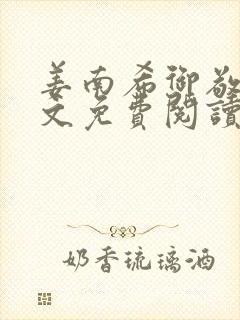 姜南希御敬
文免費閱讀
奶香琉璃酒